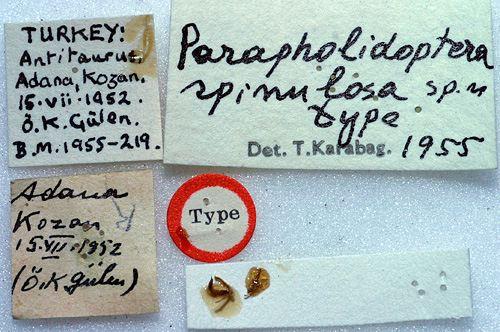 TURKEY:
Antitaurus
Adana, Kozan.
15.vii.1952.
Ö.K.Gülen.
B.M.1955-219.
Parapholidoptera
spinulosa sp.n
type
Det. T. Karabag. 1955
Adana
Kozan
15.VII.1952
(Ö.K gülen)
Type